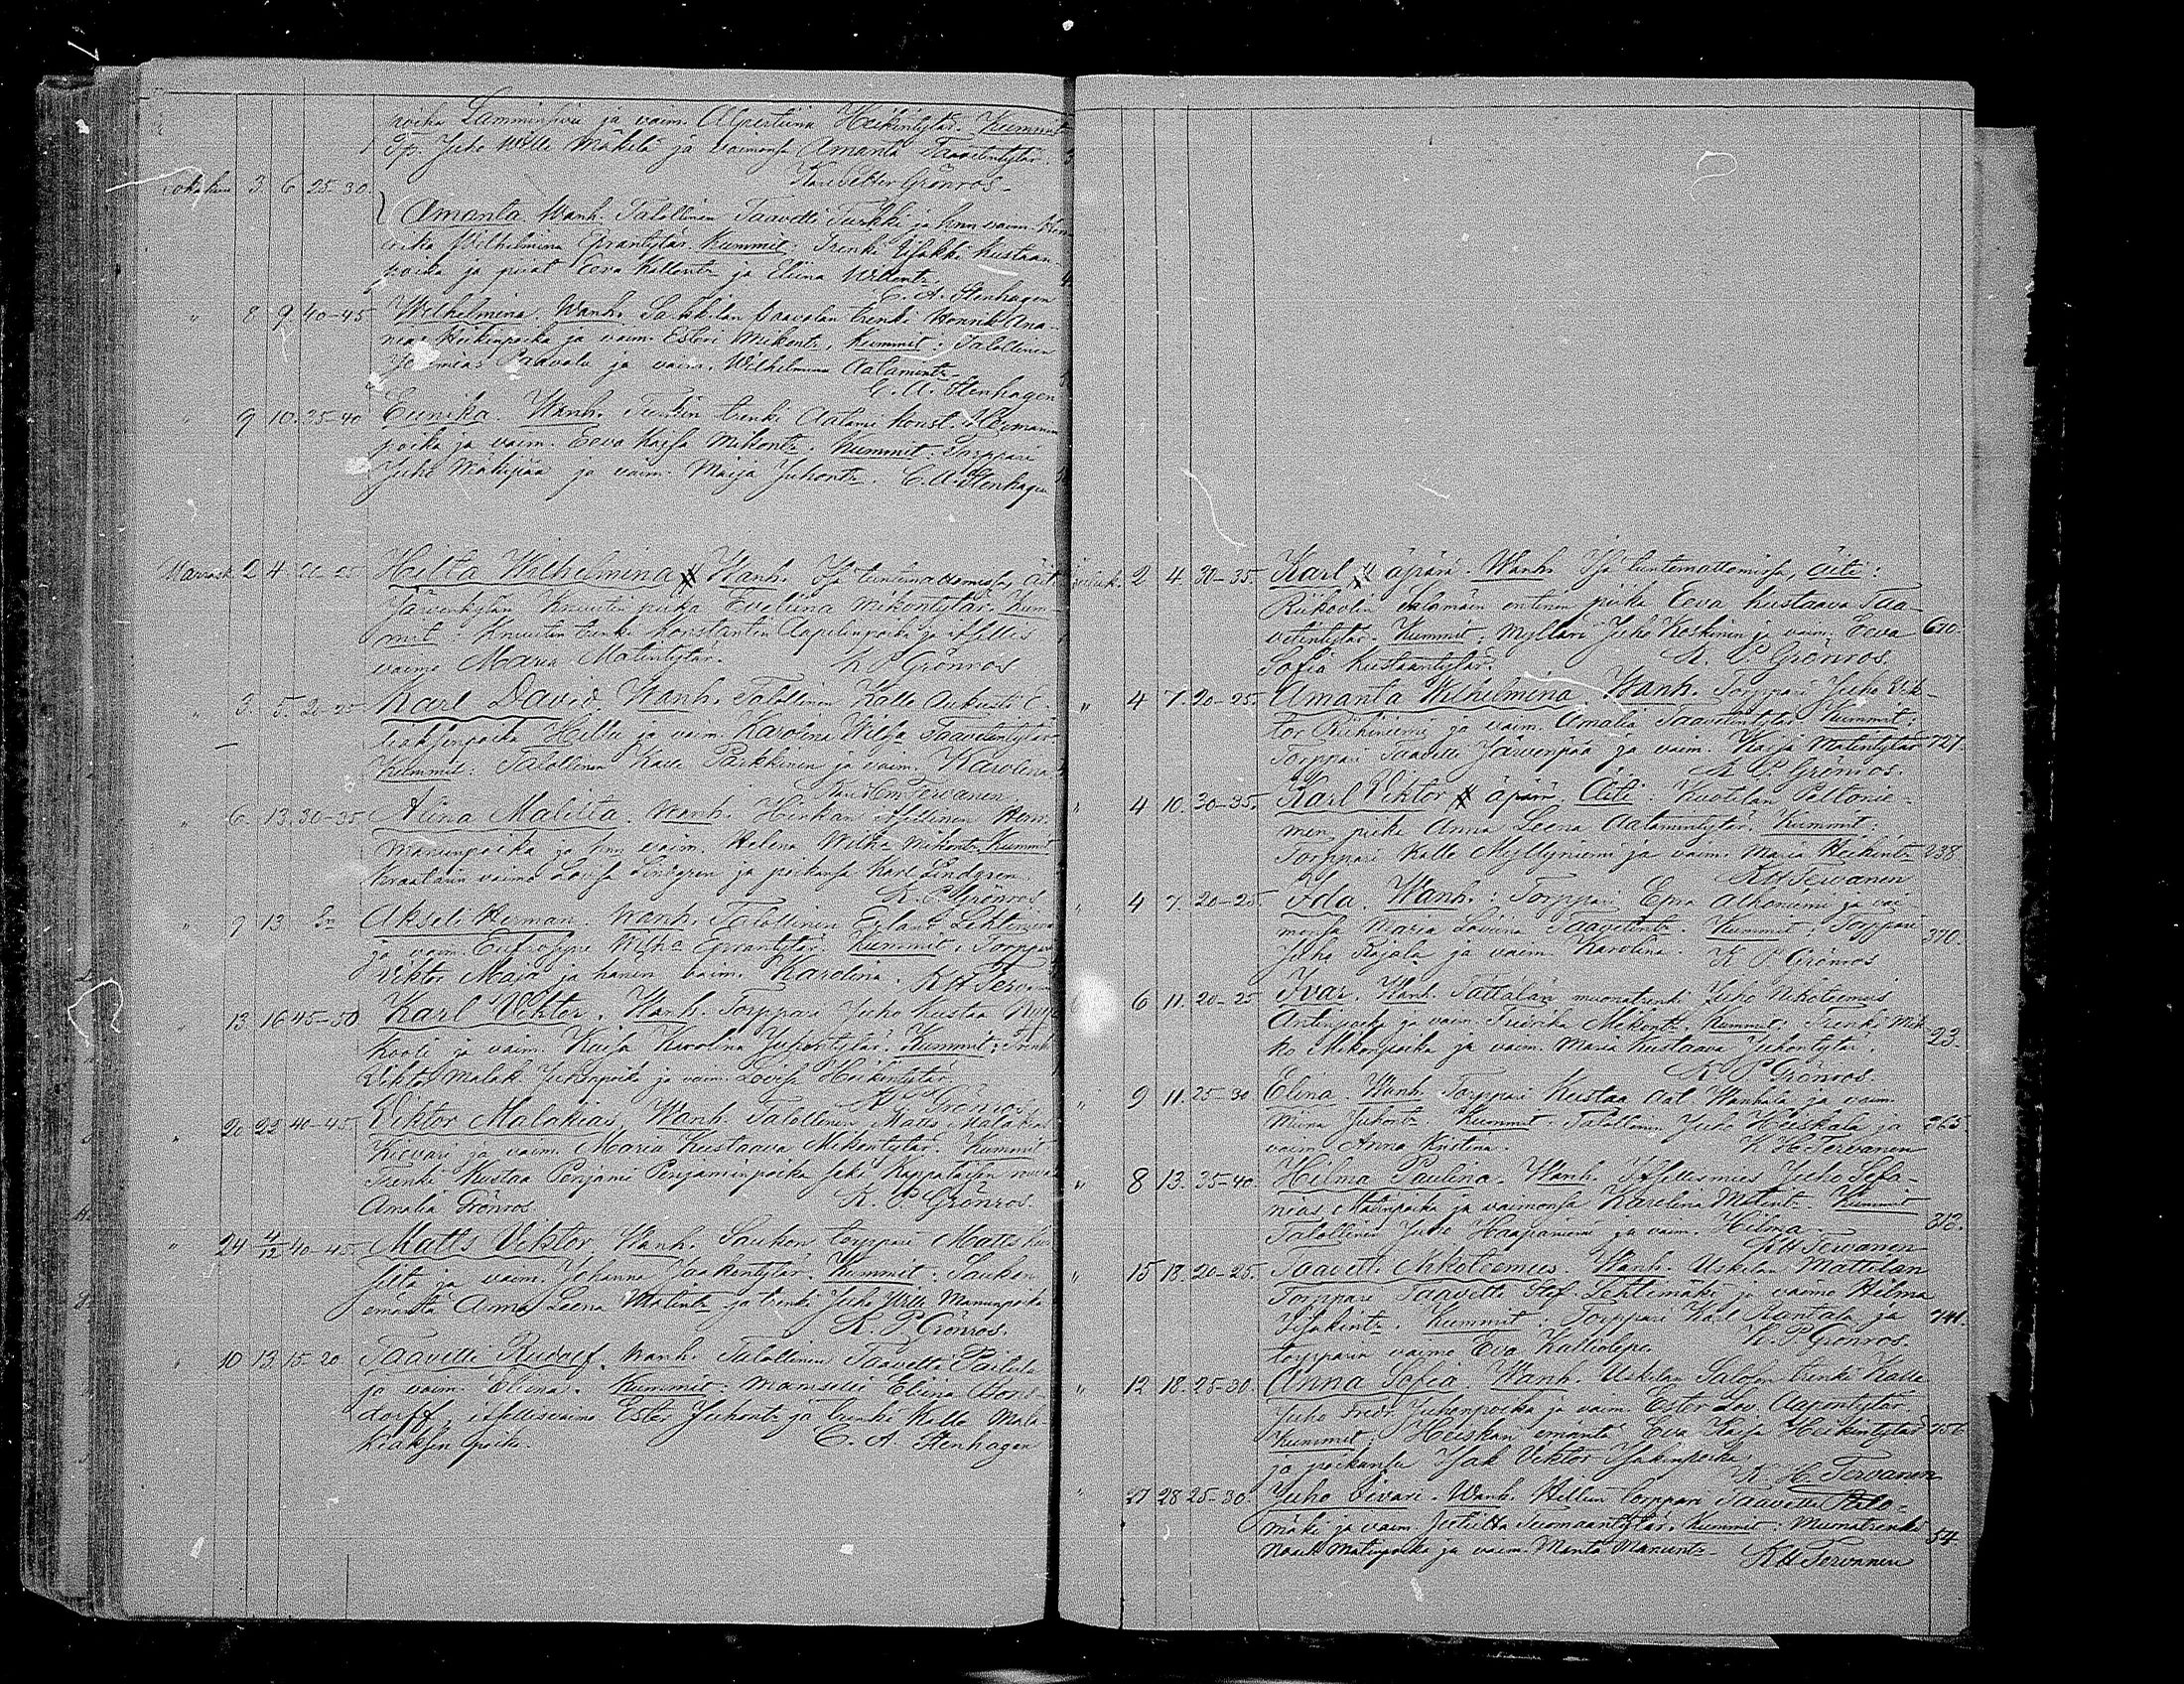 poika Lamminsivu ja vaim. Alpertiina Heikintytär. Kummit
Tp. Juho Wille Mäkelä ja vaimonsa Amanta Taavetintytär.
Karl Petter Grönros.
Lokakuu 3. 6. 25-30
Amanta Wanh. Talollinen Taavetti Turkki ja hnn vaim. Hen-
erika Wilhelmina Eprantytär. Kummit: Trenki Isakki Kustaan-
poika ja piiat Eeva Kallentr ja Eliina Willentr.
C. A. Stenhagen
" 8. 9. 40-45 Wilhelmina. Wanh. Paavolan trenki Henrik Ana-
nias Heikinpoika ja vaim. Esteri Mikontr. Kummit: Talollinen
Jeremias Paavola ja vaim. Wilhelmina Aatamintr.
C. A. Stenhagen
" 9 10. 35-40 Eunika. Wanh. Turkin trenki Aatami Konst. Hermannin
poika ja vaim. Eeva Kaisa Mikontr. Kummit: Torppari
Juho Mäkipää ja vaim. Maija Juhontr. C. A. Stenhagen
Marrask 2 4. 20-25 Hilta Wilhelmina # Wanh. Isä tuntemattomissa, äit
Järvenkylän Knuutin piika Eveliina Mikontytär. Kum-
mit: Knuutin trenki Konstantin Aapelinpoika ja itsellis
vaimo Maria Matintytär. K. P. Grönros
" 3. 5. 20-25 Karl David. Wanh. Talollinen Kalle Aukusti E-
liaksenpoika Hillu ja vaim. Karolina Wilha Taavetintytär
Kummit: Talollinen Kalle Parkkinen ja vaim. Karolina
Tervanen
" 6. 13. 30-35 Alina Malilta. Wanh. Heikan itsellinen Herm.
Manunpoika ja hnn vaim. Helena Wilha Mikontr. Kummit:
Kraatarin vaimo Lovisa Lindgren ja poikansa Karl Lindgren.
K. P. Grönros
" 9 13 Akseli Herman. Wanh. Talollinen Erland Lehtiniemi
ja vaim. Eufrosyne Wilha Eprantytär. Kummit: Torppari
Viktor Maja ja hänen vaim. Karolina. K H Tervanen
" 13 16 45-50 Karl Vihter. Wanh. Torppari Juho Kustaa
kooli ja vaim. Kaisa Karolina Jusentytär. Kummit: Trenki
Vihtor Malak. Juhanpoika ja vaim. Lovisa Heikintytär
K. P. Grönros
" 20 22 40-45 Viktor Malakias. Wanh. Talollinen Matts Malakias
Kievari ja vaim. Maria Kustaava Mikontytär. Kummit
Trenki Kustaa Penjami Penjaminpoika sekä Kappalaisen rouva
Amalia Grönros. K. P. Grönros.
" 24 4/12 40-45 Matts Viktor. Wanh. Saukon torppari Matts
ja vaim. Johanna Jaakontytär. Kummit: Saukon
emäntä Anna Leena Matintr ja trenki Juho Wille Manunpoika
K. P Grönros.
" 10 13 15-20 Taavetti Rudolf. Wanh. Talollinen Taavetti Paitula
ja vaim. Eliina. Kummit: Mamselli Eliina Bons-
dorff, itsellisvaimo Ester Juhontr ja trenki Kalle Mala-
kiaksen poika. C. A. Stenhagen
Jouluk. 2 4. 30-35. Karl # äpärä. Wanh. Isä tuntemattomissa, Äiti:
Riikolin Salomäen entinen piika Eeva Kustaava Taa-
vetintytär. Kummit: Mylläri Juho Koskinen ja vaim. Eeva 610.
Sofia Kustaantytär. K. P. Grönros.
" 4 7. 20-25. Amanta Wilhelmina. Wanh. Torppari Juho Vik-
tor Riikiniemi ja vaim. Amalia Taavetintytär Kummit:
Torppari Taavetti Järvenpää ja vaim. Kaisa Matintytär 727.
K. P. Grönros.
" 4 10. 30-35. Karl Viktor # äpärä Äiti: Kuotilan Peltonie-
men piika Anna Leena Aatamintytär. Kummit:
Torppari Kalle Myllyniemi ja vaim. Maria Heikintr 238.
K H Tervanen
" 4 7. 20-25. Ida. Wanh.: Torppari Epra Alhoniemi ja vai-
monsa Maria Loviina Taavetintr. Kummit: Torppari 370.
Juho Rajala ja vaim. Karolina. K. P. Grönros
6 11. 20-25 Ivar. Wanh. Tättälän muonatrenki Juho Nikoteemus
Antinpoika ja vaim. Fredrika Mikontr. Kummit: Trenki Mik-
ko Mikonpoika ja vaim. Maria Kustaava Juhontytär. 23.
K. P. Grönros.
" 9 11. 25-30 Elina. Wanh. Torppari Kustaa Aat Wanhala ja vaim.
Miina Juhontr. Kummit: Talollinen Juho Heiskala ja 265.
vaim. Anna Kristina. K. H. Tervanen
" 8 13. 35-40. Hilma Paulina. Wanh. Itsellismies Juho Sefa-
nias Matinpoika ja vaimonsa Karolina Matint. Kummit
Talollinen Juho Haapaniemi ja vaim. Hilma. 313.
K H Tervanen
" 15 18. 20-25. Taavetti Nikoteemus. Wanh. Uskilan Mattilan
torppari Taavetti Stef. Lehtimäki ja vaimo Hilma
Isakintr. Kummit: Torppari Karl Rantala ja 741.
torpparin vaimo Eva Kalliolepo. K. P. Grönros.
" 12 18. 25-30. Anna Sofia. Wanh. Uskilan Salosen trenki Kalle
Juho Fredr. Juhanpoika ja vaim. Ester Lov. Aapontytär.
Kummit: Heiskan emäntä Eva Kaisa Heikintytär 156
ja poikansa Isak Viktor Isakinpoika. K. H. Tervanen
" 27 28 25-30. Juho Iivari. Wanh. Hillun torppari Taavetti Palo-
mäki ja vaim Jeduitta Tuomaantytär. Kummit: Muonatrenki
Noak Matinpoika ja vaim. Manta Manuntr. 54
KH Tervanen